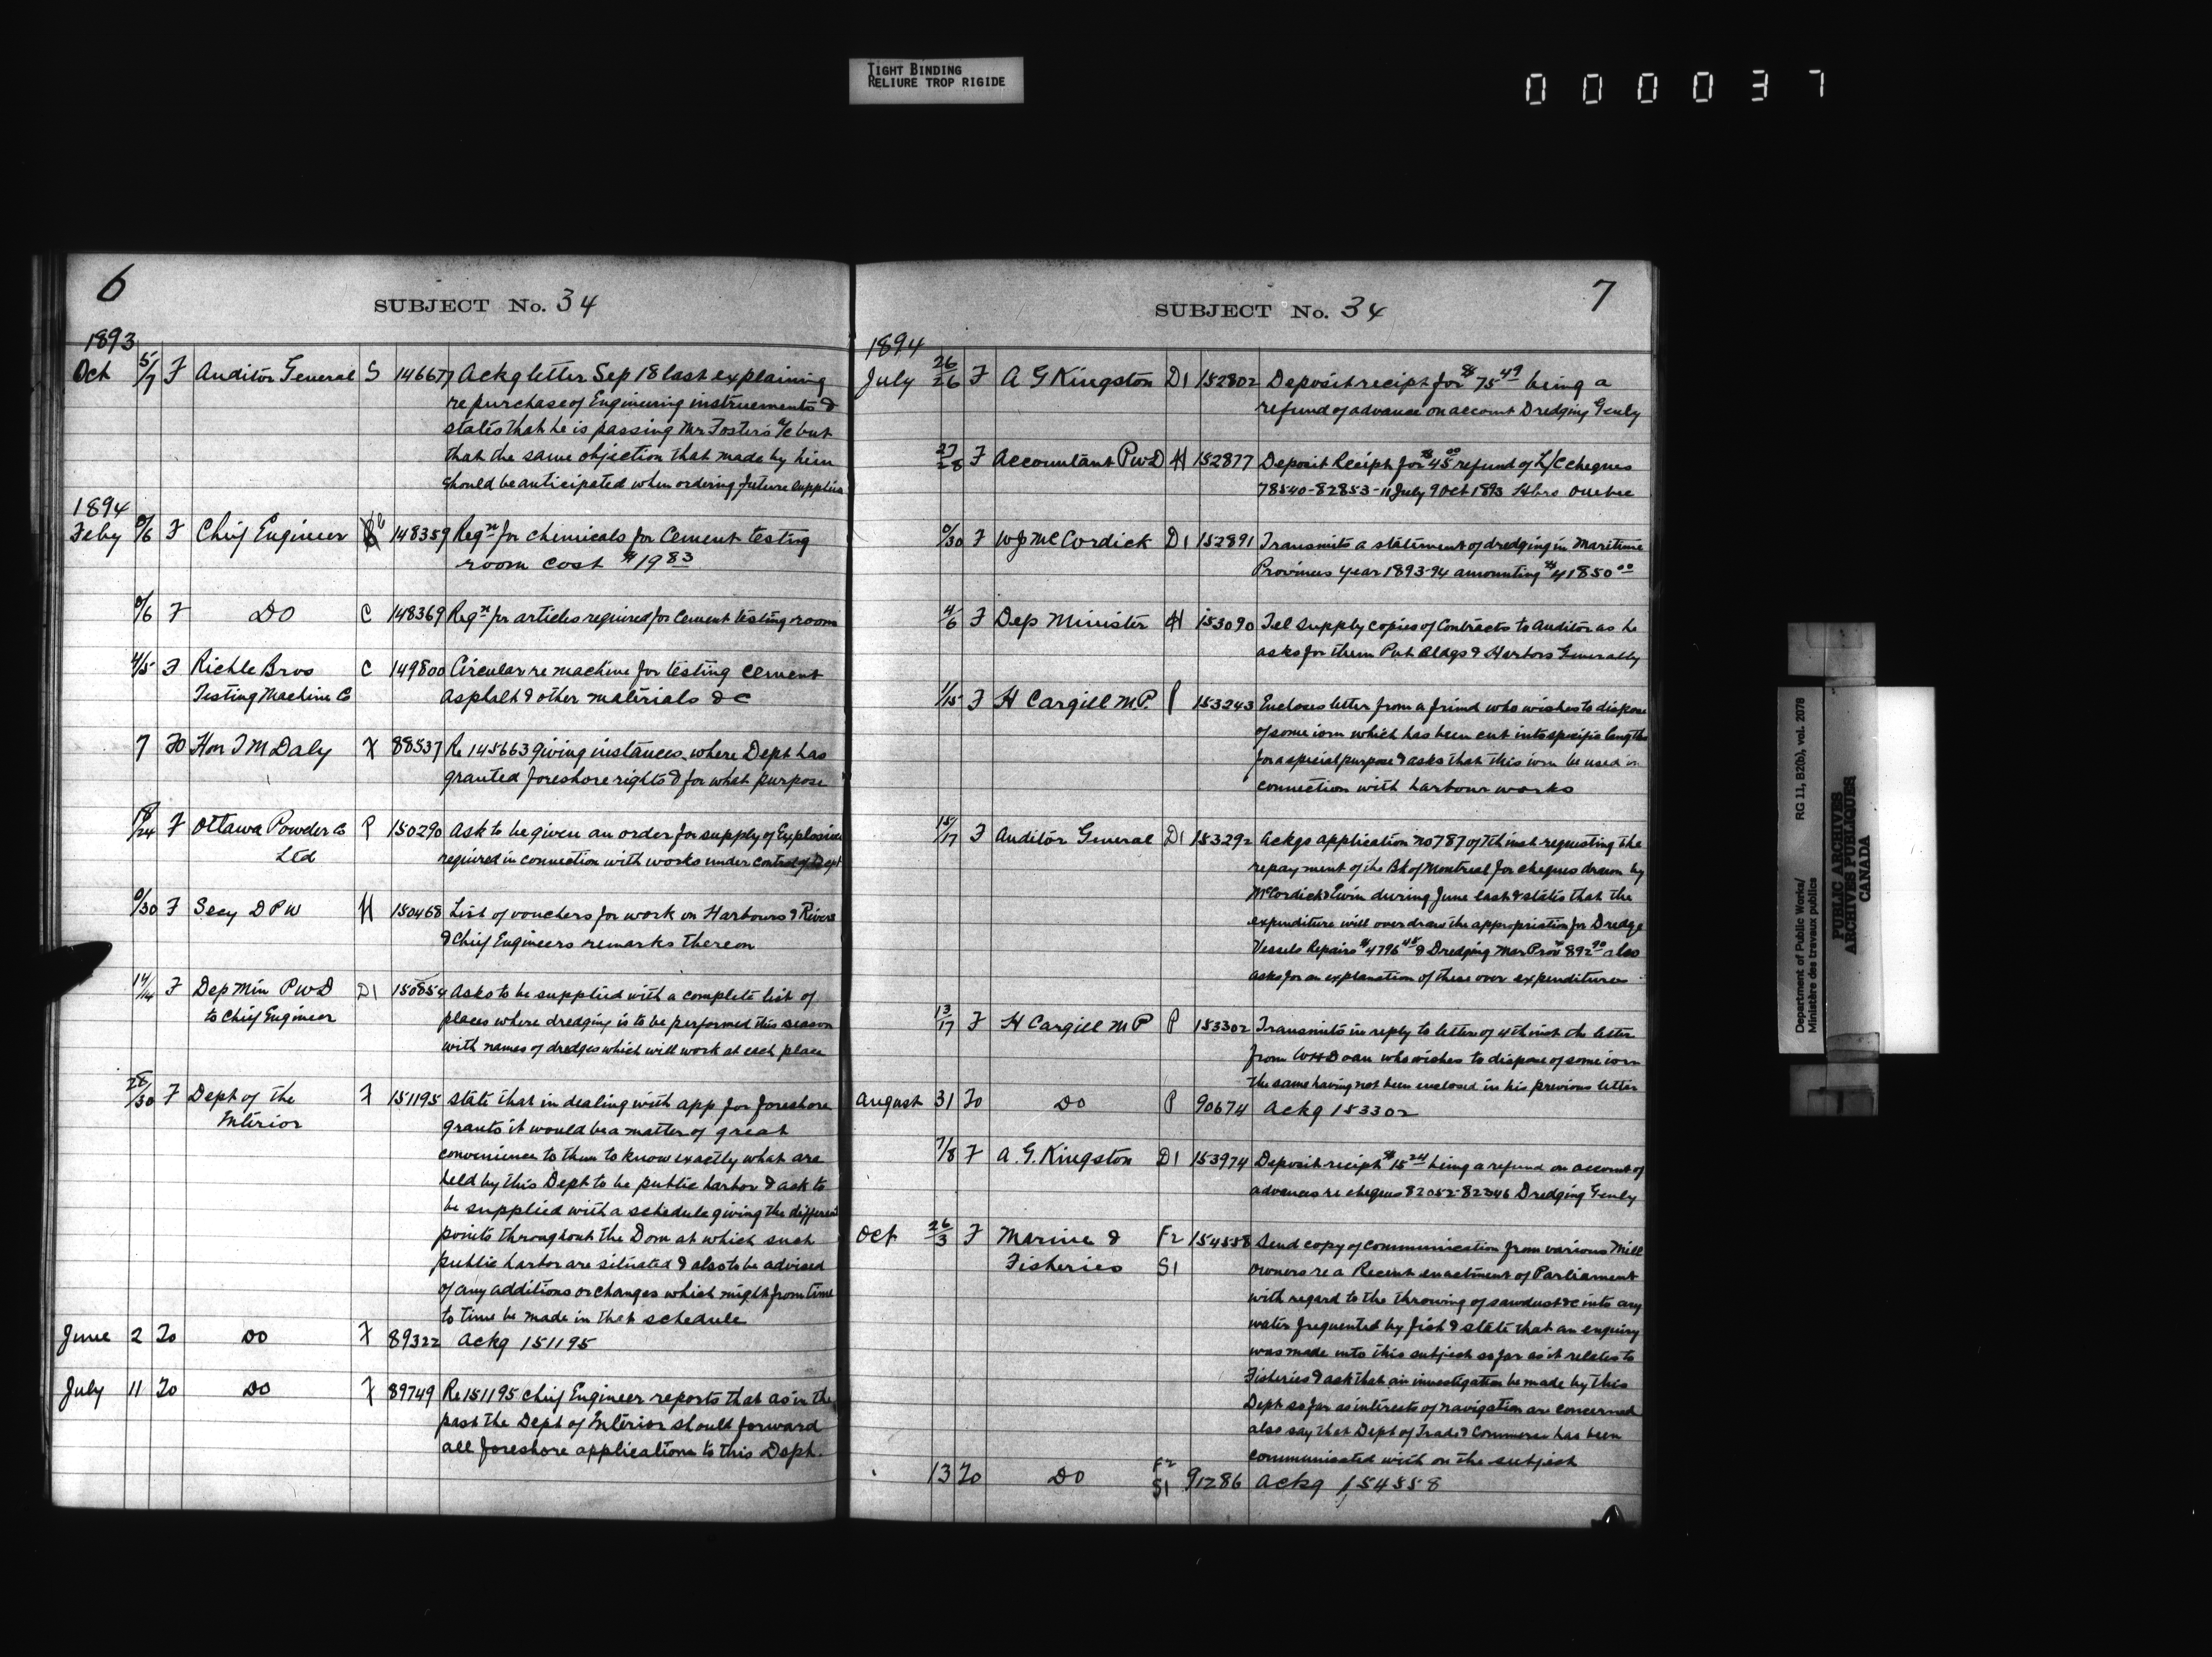 TIGHT BINDING
RELIURE TROP RIGIDE
000037
6
SUBJECT No. 34
1893
Oct 5/7 F Auditor General S 146677 Ackg letter Sep 18 last explaining
re purchase of Engineering instruements &
states that he is passing Mr Foster's a/c but
that the same objection that made by him
should be anticipated when ordering future supplies
1894
Feby 0/6 F Chief Engineer 148359 Reqn for chemicals for Cement testing
room cost $19 83
0/6 F DO C 148369 Reqn for articles required for Cement testing room
4/5 F Riehle Bros C 149800 Circular re machine for testing cement
Testing Machine Co asphalt & other materials &c
7 TO Hon T M Daly F 88537 Re 145663 giving instances where Dept has
granted foreshore rights & for what purpose
18/24 F Ottawa Powder Co P 150290 Ask to be given an order for supply of Explosives
Ltd required in connection with works under control of Dept
0/30 F Secy D P W H 150468 List of vouchers for work on Harbours & Rivers
& Chief Engineers remarks thereon
14/14 F Dep Min PWD D1 150854 Asks to be supplied with a complete list of
to Chief Engineer places where dredging is to be performed this season
with names of dredges which will work at each place
28/30 F Dept of the F 151195 state that in dealing with app for foreshore
Interior grants it would be a matter of great
convenience to them to know exactly what are
held by this Dept to be public harbor & ask to
be supplied with a schedule giving the different
points throughout the Dom at which such
public harbor are situated & also to be advised
of any additions or changes which might from time
to time be made in that schedule
June 2 To DO F 89322 Ackg 151195
July 11 To DO F 89749 Re 151195 Chief Engineer reports that as in the
past the Dept of Interior should forward
all foreshore applications to this Dept.
7
SUBJECT No. 34
1894
July 26/26 F A G Kingston D1 152802 Deposit recipt for $75 49 being a
refund of advance on account Dredging Genly
27/28 F Accountant PWD H 152877 Deposit Recipt for $45 00 refund of L/C cheques
78540-82853-11 July 9 Oct 1893 Hbrs Quebec
0/30 F W J McCordick D1 152891 Transmits a statement of dredging in Maritime
Provinces year 1893-94 amounting $41850 00
4/6 F Dep Minister H 153090 Tel supply copies of Contracts to Auditor as he
asks for them Pub Bldgs & Harbors Generally
1/15 F H Cargill M.P. P 153243 Encloses letter from a friend who wishes to dispose
of some iron which has been cut into specific lengths
for a special purpose & asks that this iron be used in
connection with harbour works
15/17 F Auditor General D1 153292 Ackgs application no 787 of 7th inst requesting the
repayment of the Bk of Montreal for cheques drawn by
McCordick & Ewin during June last & states that the
expenditure will over draw the appropriation for Dredge
Vessels Repairs $4796 45 & Dredging Mar Prov $892 90 also
asks for an explanation of these over expenditures
13/17 F H Cargill M P P 153302 Transmits in reply to letter of 4th inst the letter
from W H Doan who wishes to dispose of some iron
the same having not been enclosed in his previous letter
August 31 To DO P 90674 Ackg 153302
7/8 F A. G. Kingston D1 153974 Deposit recipt $15 24 being a refund on account of
advances re cheques 82052-82346 Dredging Genly
Oct 26/3 F Marine & F2 154558 Send copy of communication from various Mill
Fisheries S1 owners re a Recent enactment of Parliament
with regard to the throwing of sawdust &c into any
water frequented by fish & state that an enquiry
was made into this subject so far as it relates to
Fisheries & ask that an investigation be made by this
Dept so far as interests of navigation are concerned
also say that Dept of Trade & Commerce has been
communicated with on the subject
13 To DO F2 S1 91286 Ackg 154558
Department of Public Works/ RG 11, B2(b), vol. 2078
Ministère des travaux publics
PUBLIC ARCHIVES
ARCHIVES PUBLIQUES
CANADA